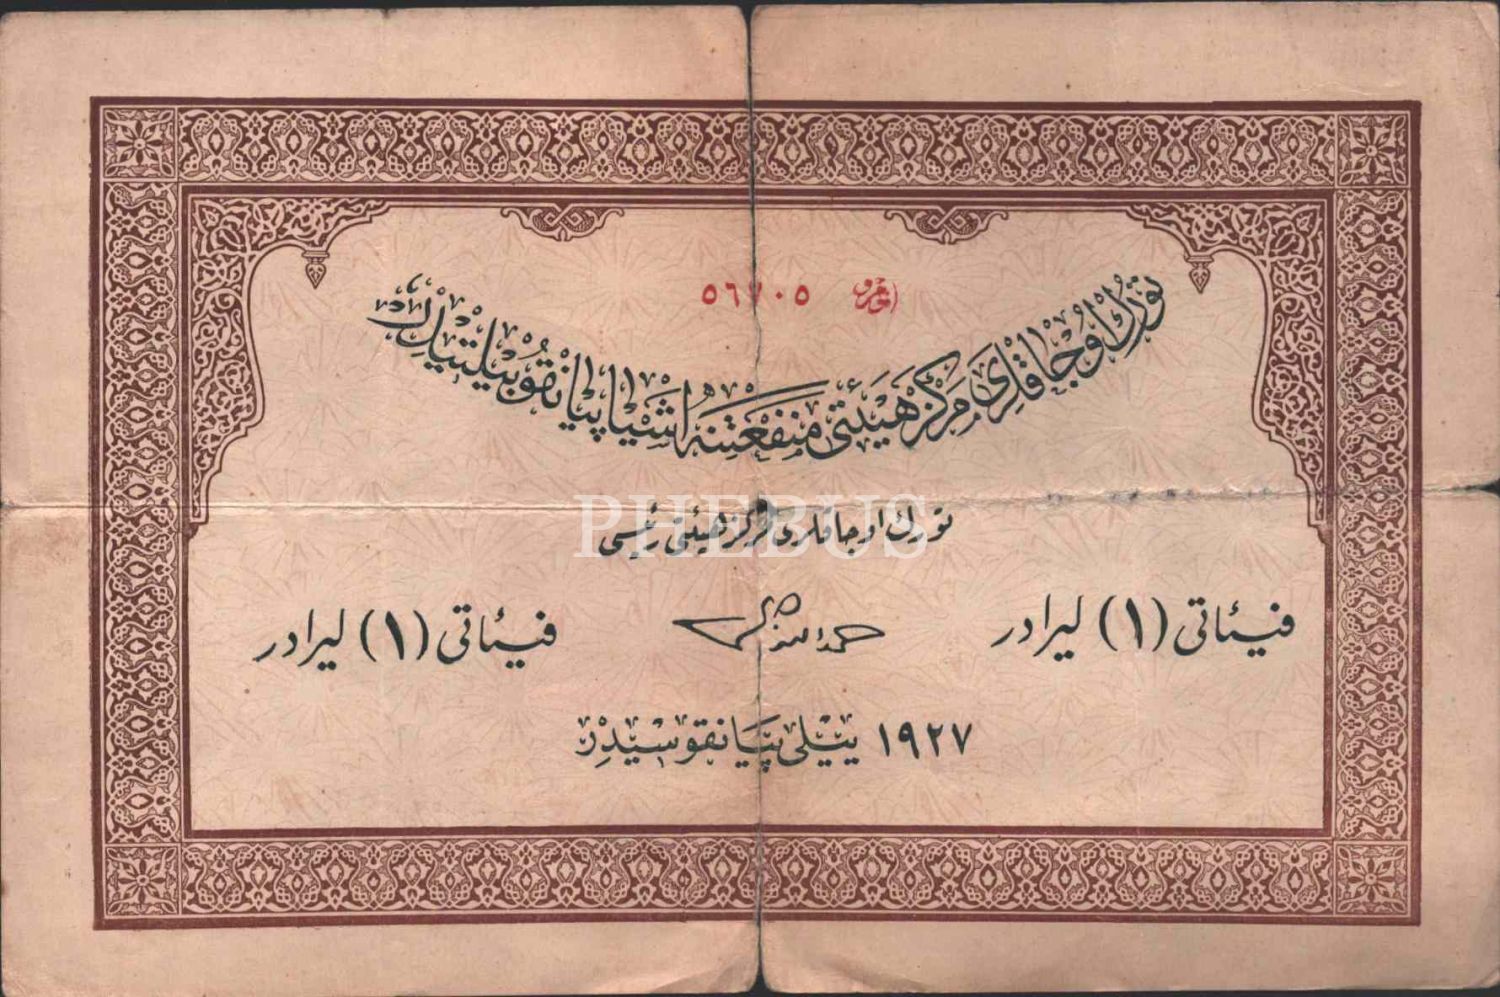 نومرو ٥٦٧٠٥
تورك اوجاقلرى مركز هيئتى منفعتنه اشيا پيانقو بيلتيدر
تورك اوجاقلرى مركز هيئتى رئيسى
فيئاتى (١) ليرادر
فيئاتى (١) ليرادر
١٩٢٧ ييلى پيانقوسيدر
PHEBUS